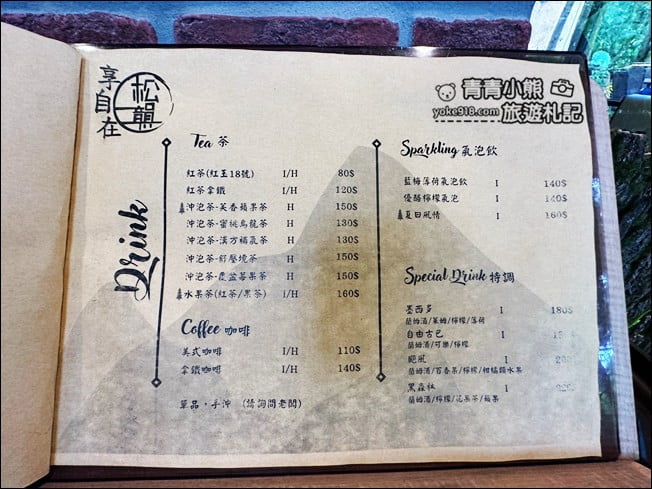 享自在
松韻
青青小熊
旅遊札記
yoke918.com
Drink
Tea 茶
紅茶(紅玉18號) I/H 80$
紅茶拿鐵 I/H 120$
沖泡茶-芙香蘋果茶 H 150$
沖泡茶-蜜桃烏龍茶 H 130$
沖泡茶-漢方橘氣茶 H 130$
沖泡茶-舒壓境茶 H 150$
沖泡茶-農盆莓果茶 H 150$
水果茶(紅茶/果茶) I/H 160$
Coffee 咖啡
美式咖啡 I/H 110$
拿鐵咖啡 I/H 140$
單品・手沖 (請詢問老闆)
Sparkling 氣泡飲
藍莓薄荷氣泡飲 I 140$
優酪檸檬氣泡 I 140$
夏日風情 I 160$
Special Drink 特調
墨西多 I 180$
蘭姆酒/萊姆/檸檬/薄荷
自由古巴 I
蘭姆酒/可樂/檸檬
颶風 I
蘭姆酒/百香果/檸檬/柑橘類水果
黑森林 I
蘭姆酒/檸檬/花果茶/蘋果